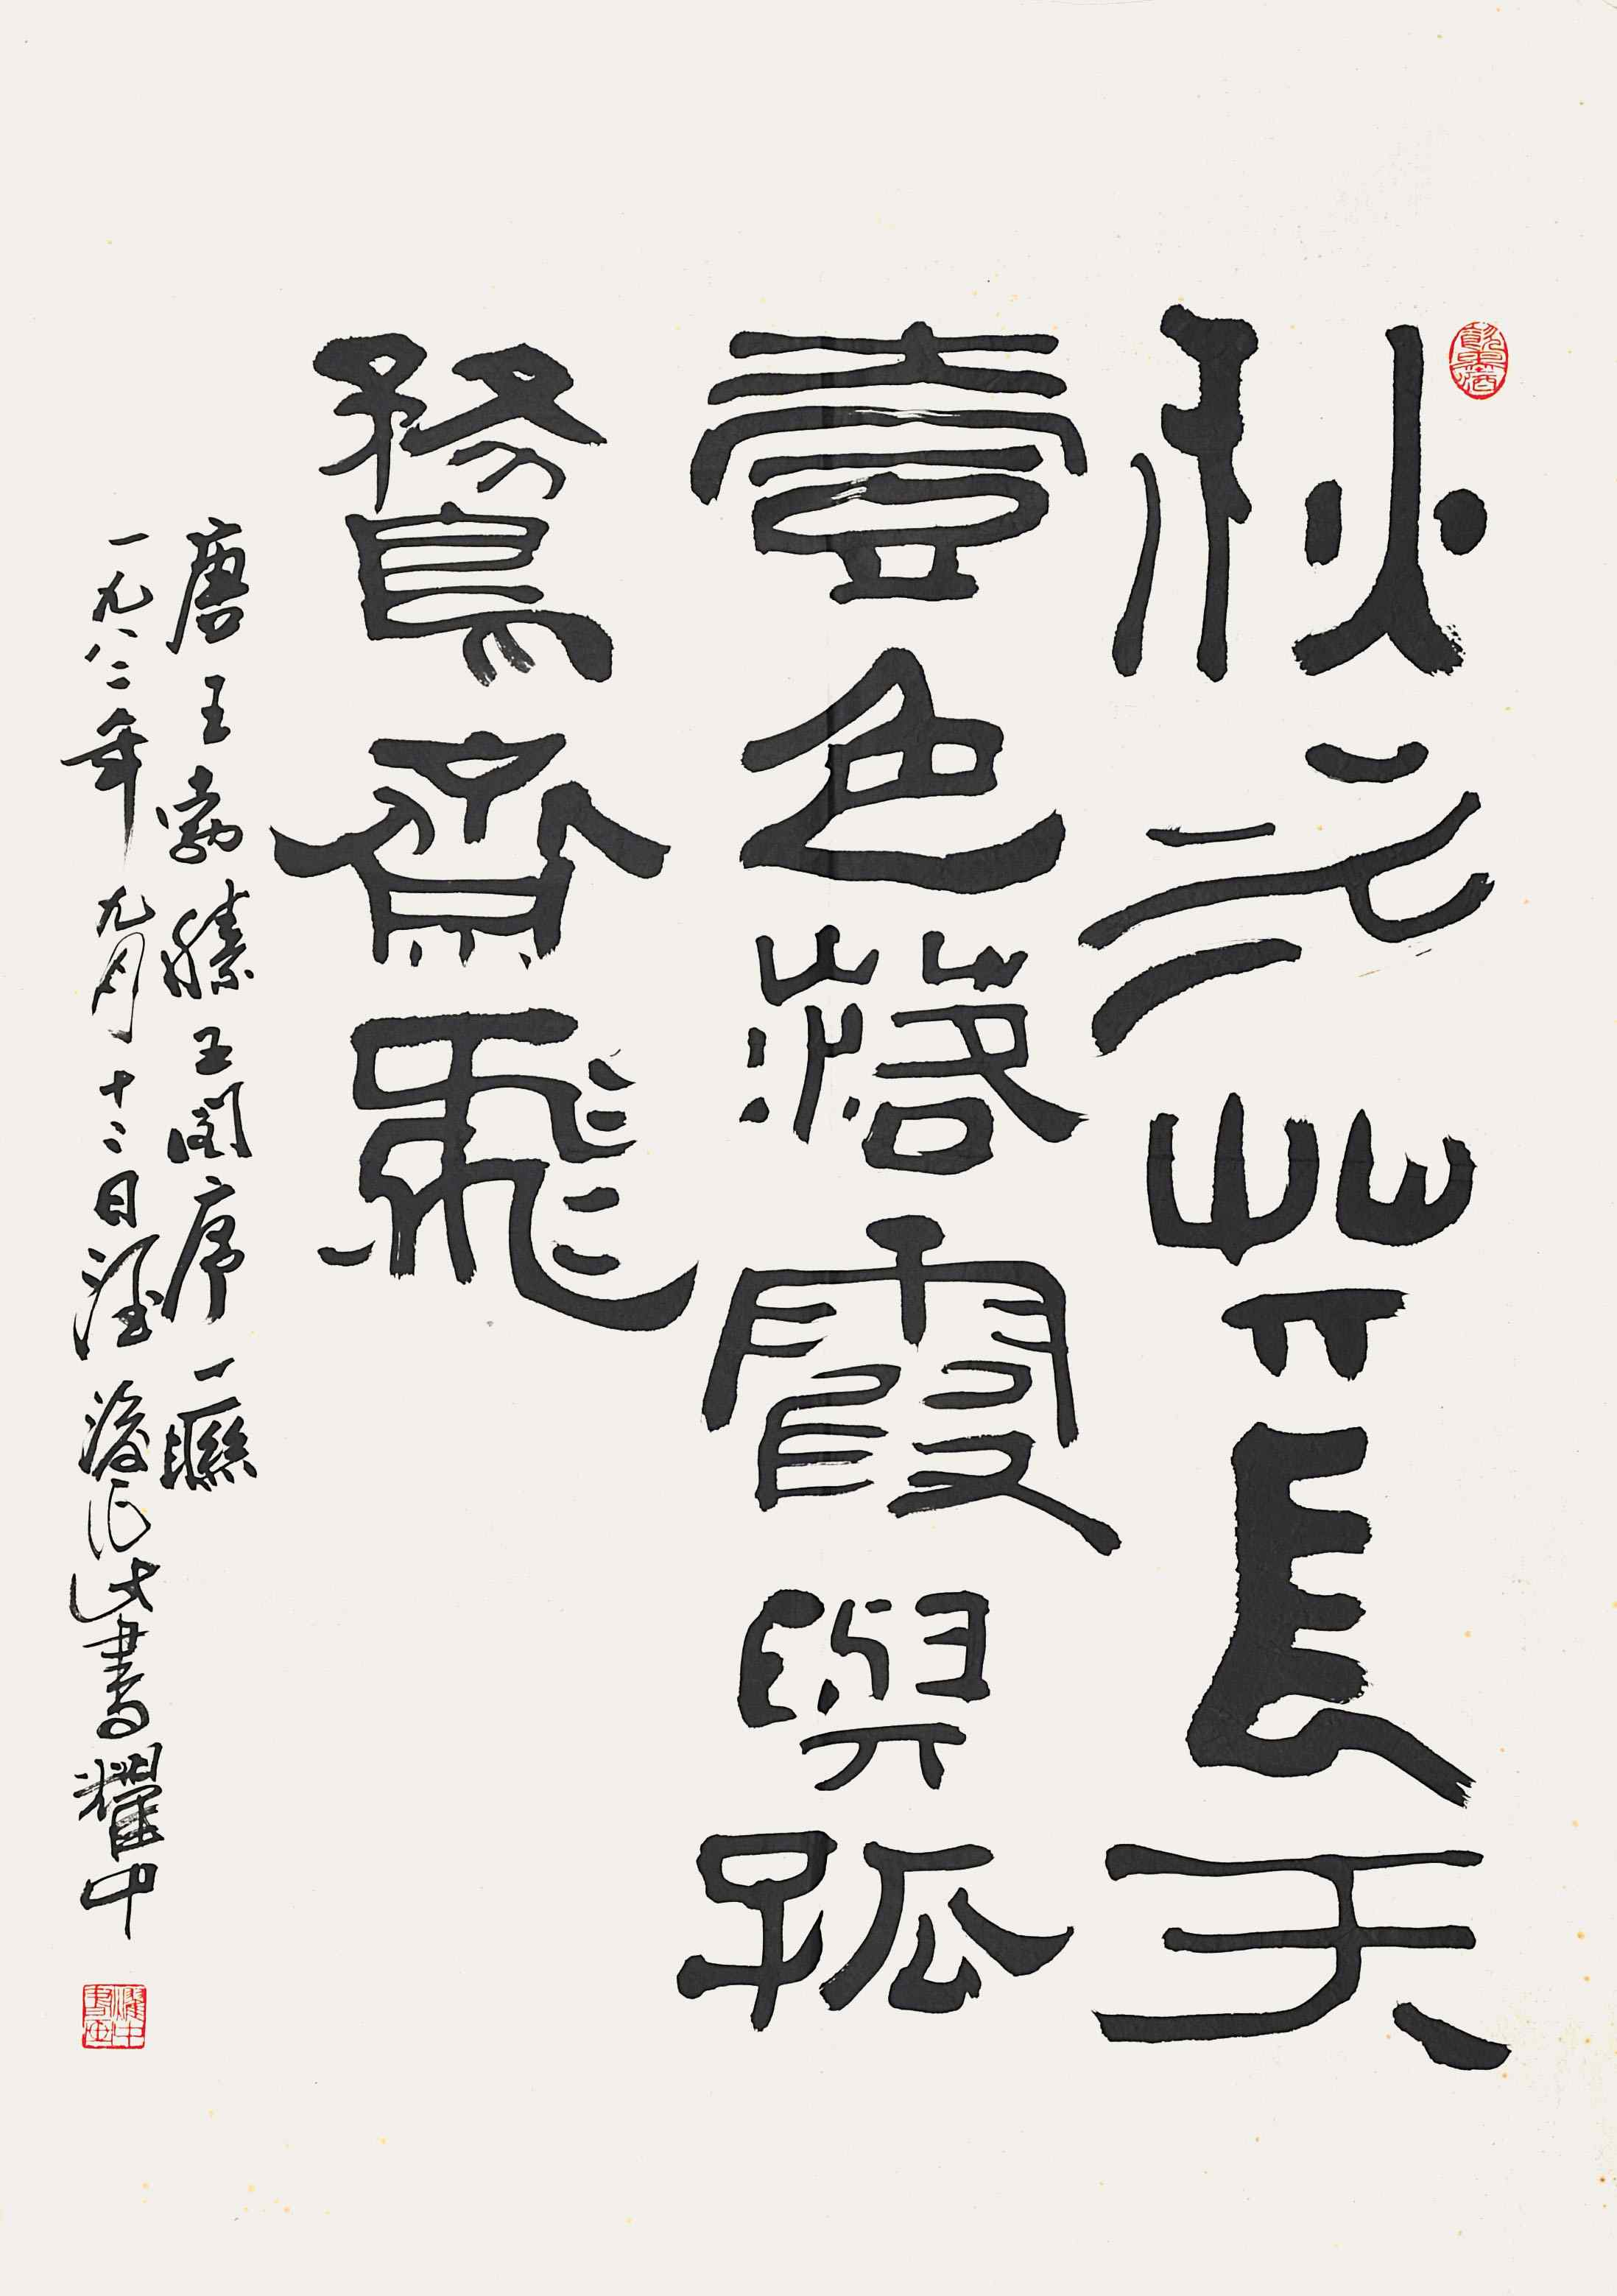 秋水共長天
壹色落霞與孤
鶩齊飛
唐王勃滕王閣序一聯
一九八二年九月十二日 書耀中
耀中書画